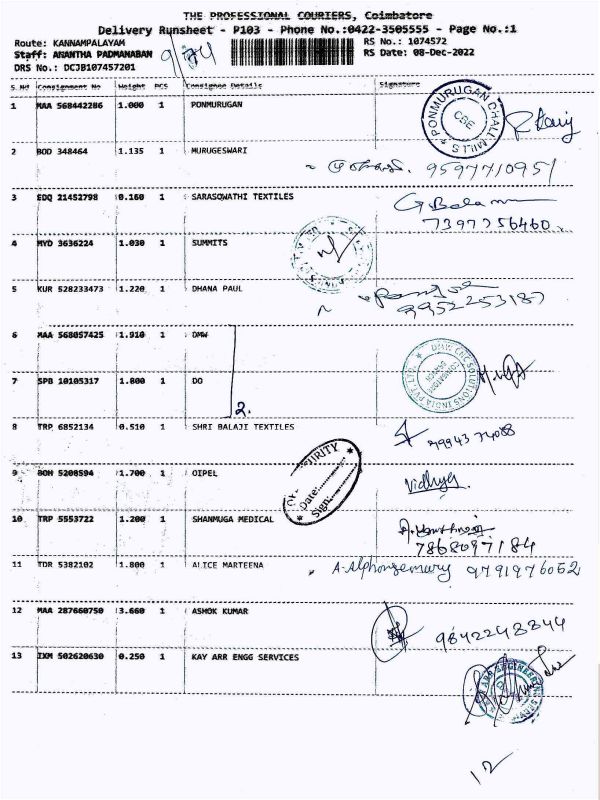 THE PROFESSIONAL COURIERS, Coimbatore
Delivery Runsheet - P103 - Phone No.:0422-3505555 - Page No.:1
Route: KANNAMPALAYAM RS No.: 1074572
Staff: ANANTHA PADMANABAN RS Date: 08-Dec-2022
DRS No.: DCJB107457201
S.No Consignment No Weight PCS Consignee Details Signature
1 MAA 568442286 1.000 1 PONMURUGAN
PONMURUGAN CHALL MILLS CBE
2 BOD 348464 1.135 1 MURUGESWARI
9597710951
3 EDQ 21452798 0.160 1 SARASOWATHI TEXTILES
7397756460
4 MYD 3636224 1.030 1 SUMMITS
5 KUR 528233473 1.220 1 DHANA PAUL
9952253187
6 MAA 568057425 1.910 1 DMW
DMW CNC SOLUTIONS INDIA PVT. LTD.
7 SPB 10105317 1.800 1 DO
2.
8 TRP 6852134 0.510 1 SHRI BALAJI TEXTILES
9 BOM 5208594 1.700 1 OIPEL
Vidhya
Date:
Sign:
10 TRP 5553722 1.200 1 SHANMUGA MEDICAL
7868097184
11 TDR 5382102 1.800 1 ALICE MARTEENA
A-Alphonsemary 9791976052
12 MAA 287660750 3.660 1 ASHOK KUMAR
9842248844
13 IXM 502620630 0.250 1 KAY ARR ENGG SERVICES
12